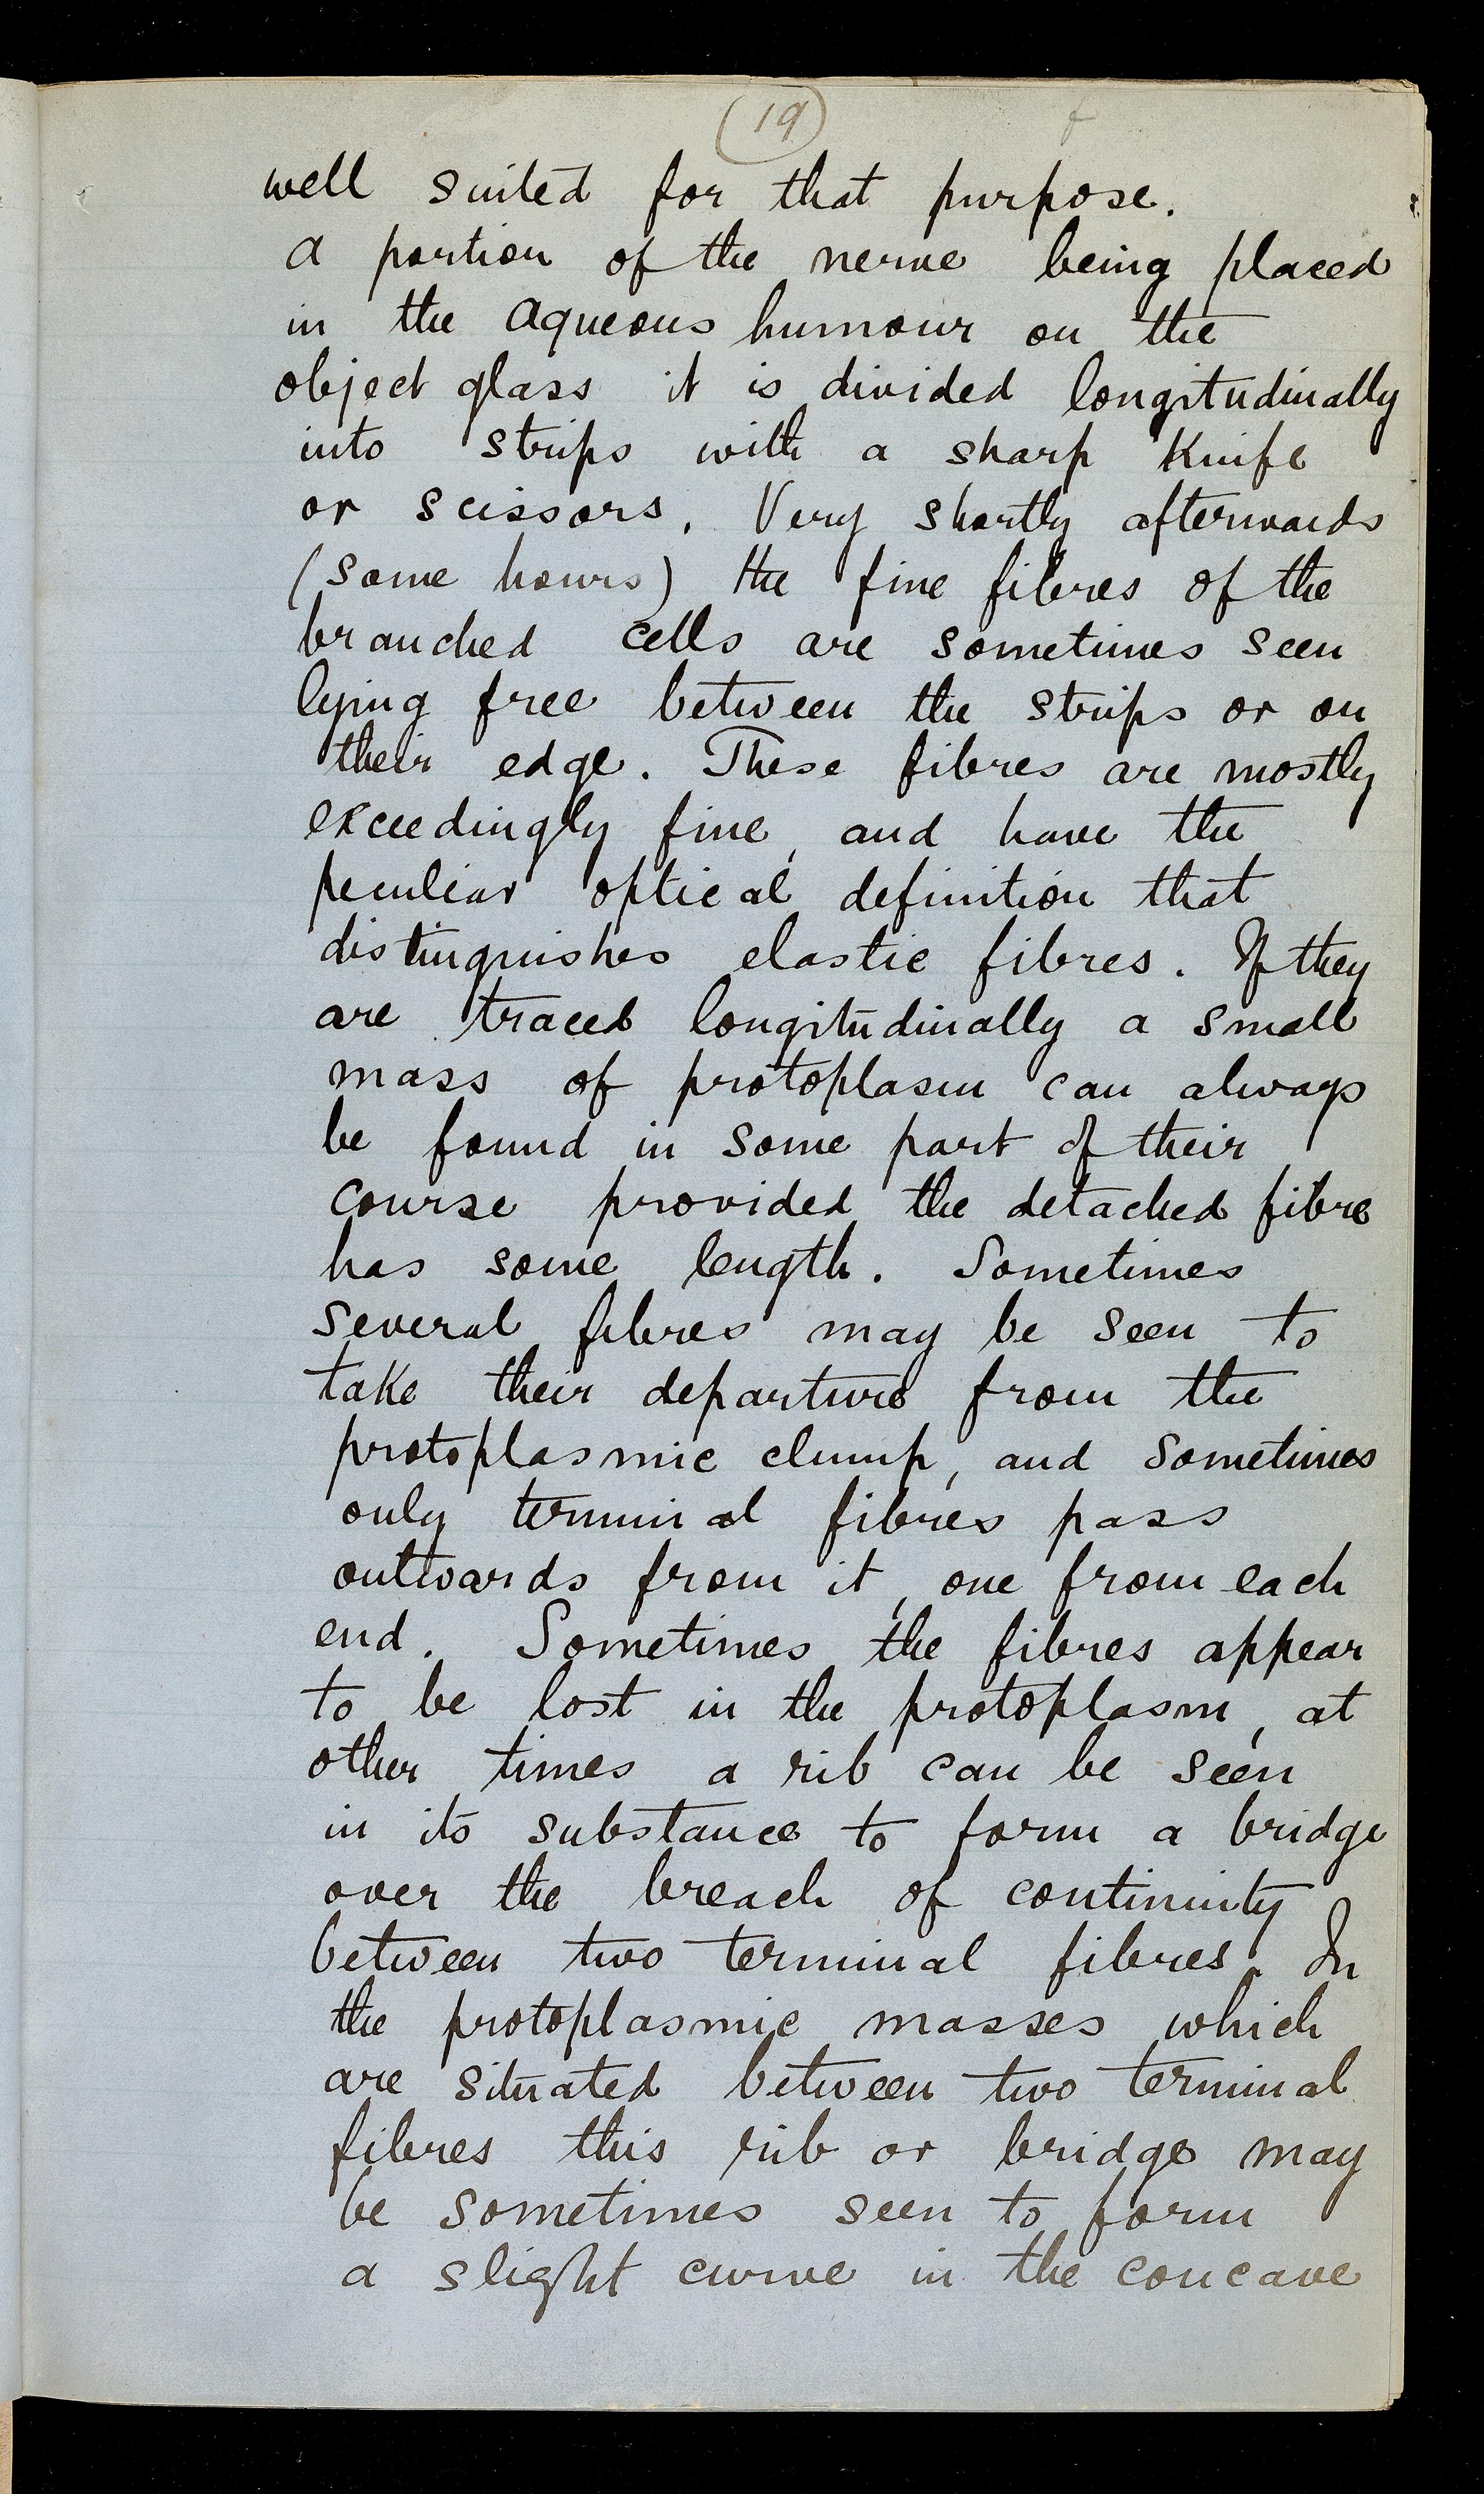 (19)
well suited for that purpose.
A portion of the nerve being placed
in the aqueous humour on the
object glass it is divided longitudinally
into strips with a sharp Knife
or scissors. Very shortly afterwards
(some hours) the fine fibres of the
branched cells are sometimes seen
lying free between the strips or on
their edge. These fibres are mostly
exceedingly fine, and have the
peculiar optical definition that
distinguishes elastic fibres. If they
are traced longitudinally a small
mass of protoplasm can always
be found in some part of their
course provided the detached fibre
has some length. Sometimes
several fibres may be seen to
take their departure from the
protoplasmic clump, and sometimes
only terminal fibres pass
outwards from it, one from each
end. Sometimes the fibres appear
to be lost in the protoplasm, at
other times a rib can be seen
in its substance to form a bridge
over the breach of continuity
between two terminal fibres. In
the protoplasmic masses which
are situated between two terminal
fibres this rib or bridge may
be sometimes seen to form
a slight curve in the concave